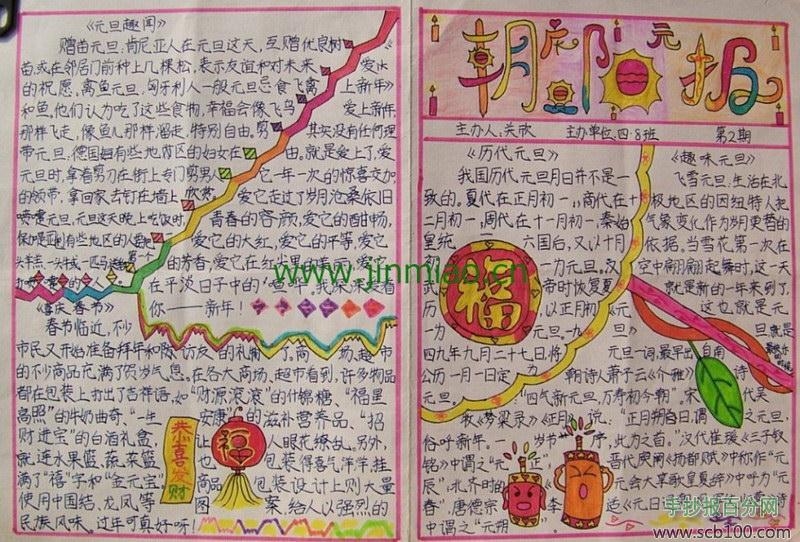 《元旦趣闻》
赠苗元旦:肯尼亚人在元旦这天,互赠优良树
苗,或在邻居门前种上几棵松,表示友谊和对未来
的祝愿,离鱼元旦,匈牙利人一般元旦忌食飞禽
和鱼。他们认为吃了这些食物,幸福会像飞鸟
那样飞走,像鱼儿那样溜走。特别自由,男
带元旦:德国妇有些地区的妇女在
元旦时,拿着剪刀在街上专门剪男人
的领带,拿回家去钉在墙上欣赏
元旦,元旦这天晚上吃饭时,
爱你
上新年》
爱上新年,
其实没有任何理
由。就是爱上了,爱
它一年一次的惊喜交加
爱它走过了岁月沧桑依旧
青春的容颜,爱它的酣畅,
爱它的大红,爱它的平等,爱它
的芳香,爱它在红尘里的
在平淡日子中的
你——新年!
《喜庆春节》
春节临近,不少
市民又开始准备拜年和
访友的礼物了,商场、超市
的不少商品充满了贺岁气息。在各大商场、超市看到,许多物品
都在包装上打出了吉祥语,如“财源滚滚”的什锦糖、“福星
高照”的牛奶曲奇、“一生安康”的滋补营养品、“招
财进宝”的白酒礼盒,让人眼花缭乱。另外,
就连水果篮、蔬菜篮也包装得喜气洋洋,挂
满了“禧”字和“金元宝”商品包装设计上则大量
使用中国结、龙凤等图案,给人以强烈的
民族风味。过年可真好呀!
恭喜发财
福
庆元旦
朝阳报
主办人:关欣 主办单位四·8班 第2期
《历代元旦》
我国历代元旦月日并不是一
致的。夏代在正月初一,商代在十
二月初一,周代在十一月初一,秦始
皇统一六国后,又以十月
初一为元旦,汉
武帝时恢复夏
历,以正月初
一为元旦。一九
四九年九月二十七日,将
公历一月一日定为
《趣味元旦》
飞雪元旦,生活在北
极地区的因纽特人把
气象变化作为岁月更替的
依据,当雪花第一次在
空中翩翩起舞时,这一天
就是新的一年来到了,
这也就是元
旦
福
元旦一词,最早出自南
朝诗人萧子云《介雅》诗:
“四气新元旦,万寿初今朝”。宋代吴
自牧《梦粱录》《正月》说:“正月朔日,谓之元旦,
俗呼新年。一岁节序,此为之首。”汉代崔瑗《三子钗
铭》中谓之“元正”,晋代庾阐《扬都赋》中称作“元
辰”,北齐时的《元会大享歌皇夏辞》中呼为“元
春”,唐德宗李适《元日
中谓之“元朔”
www.jinmiao.cn
手抄报百分网
www.scb100.com